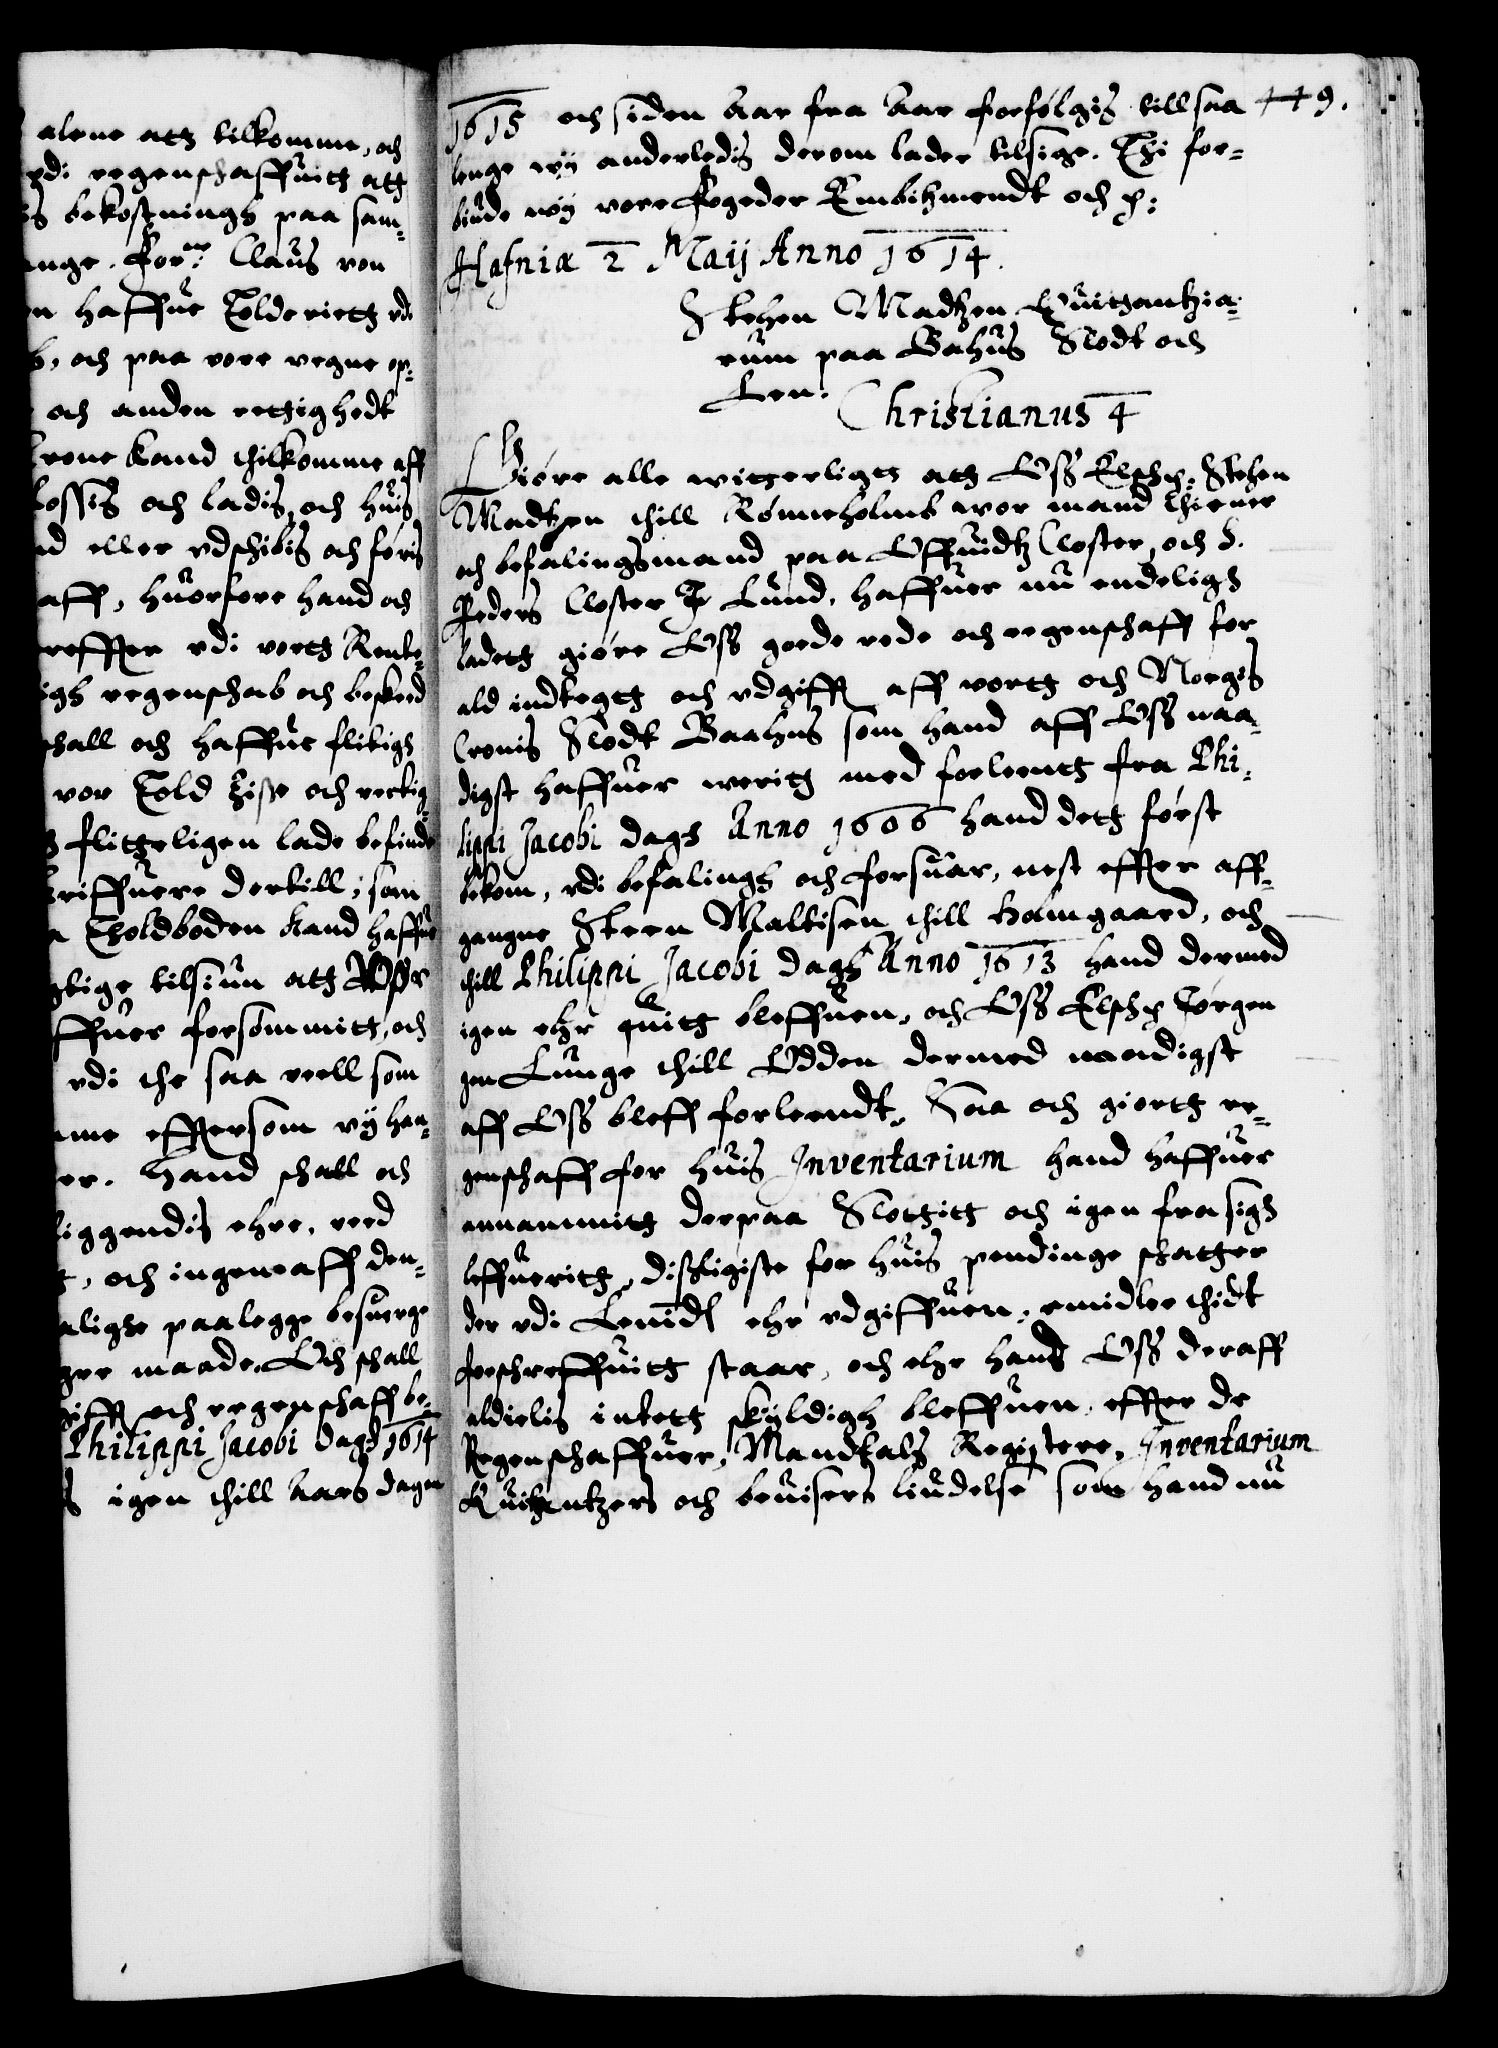 alene att tilkomme, och
vdi regenschaffuitt att
bekostningh paa sam-
ange. For.ne Claus von
haffue Tolderiett vdi
och paa vore vegne op-
och anden rettighedt
Crone kand thilkomme aff
lossis och ladis, och huis
eller vdschibis och föris
aff, huorfore hand och
vdi vortt Rente-
regenschab och beskeed
schall och haffue flitigh
vor Told Zise och rettig-
flitteligen lade befinde
schriffuere dertill, som
Tholdboden kand haffue
tilsiun att
forsömmitt, och
vdi the saa veell som
effttersom vy haa-
hand schall och
liggendis ehre, veed
och ingen aff den-
paalegge besuerge
maade. Och schall
och regenschaff be-
Philippi Jacobi dagh 1614
igen thill Aars dagen
449.
1615 och siden Aar fra Aar forfölgis till saa
lenge wy anderledis derom lader tilsige. Thi for-
biude wy vore fogeder Embitzmendt och p:
Hafniæ 2 Maij Anno 1614.
Stehen Madtzen Quitzantzia-
rum paa Bahus Slodt och
Len.
Christianus 4
Giöre alle witterligtt att Oss Elsch: Stehen
Madtzen thill Rönneholmb wor mand Thiener
och befalingsmand paa Offuidtz Closter, och S.
Peders Closter I Lund, haffuer nu endeligh
ladett giöre Oss goede rede och regenschaff for
ald indtegtt och vdgifft aff vortt och Norgis
Cronis Slodt Baahus som hand aff Oss naa-
digst haffuer weritt med forleentt fra Phi-
lippi Jacobi dagh Anno 1606 hand dett först
bekom, vdi befalingh och forsuar, nest effter aff-
gangne Steen Maltisen thill Holmgaard, och
thill Philippi Jacobi dagh Anno 1613 hand dermed
igen ehr quitt bleffuen, och Oss Elsch Jörgen
gen Lunge thill Odden dermed naadigst
aff Oss bleff forleendt, Saa och giortt re-
genschaff for huis Inventarium hand haffuer
annammitt derpaa Slottitt och igen fra sigh
leffueritt, disligiste for huis pendinge schatter
der vdi Lenidt ehr vdgiffuen, emidler thidt
forschreffuitt staar, och ehr hand Oss deraff
aldielis intett skyldigh bleffuen, effter de
Regenschaffuer, Mandtals Registere, Inventarium
Quitzantzers och beuisers liudelse som hand nu